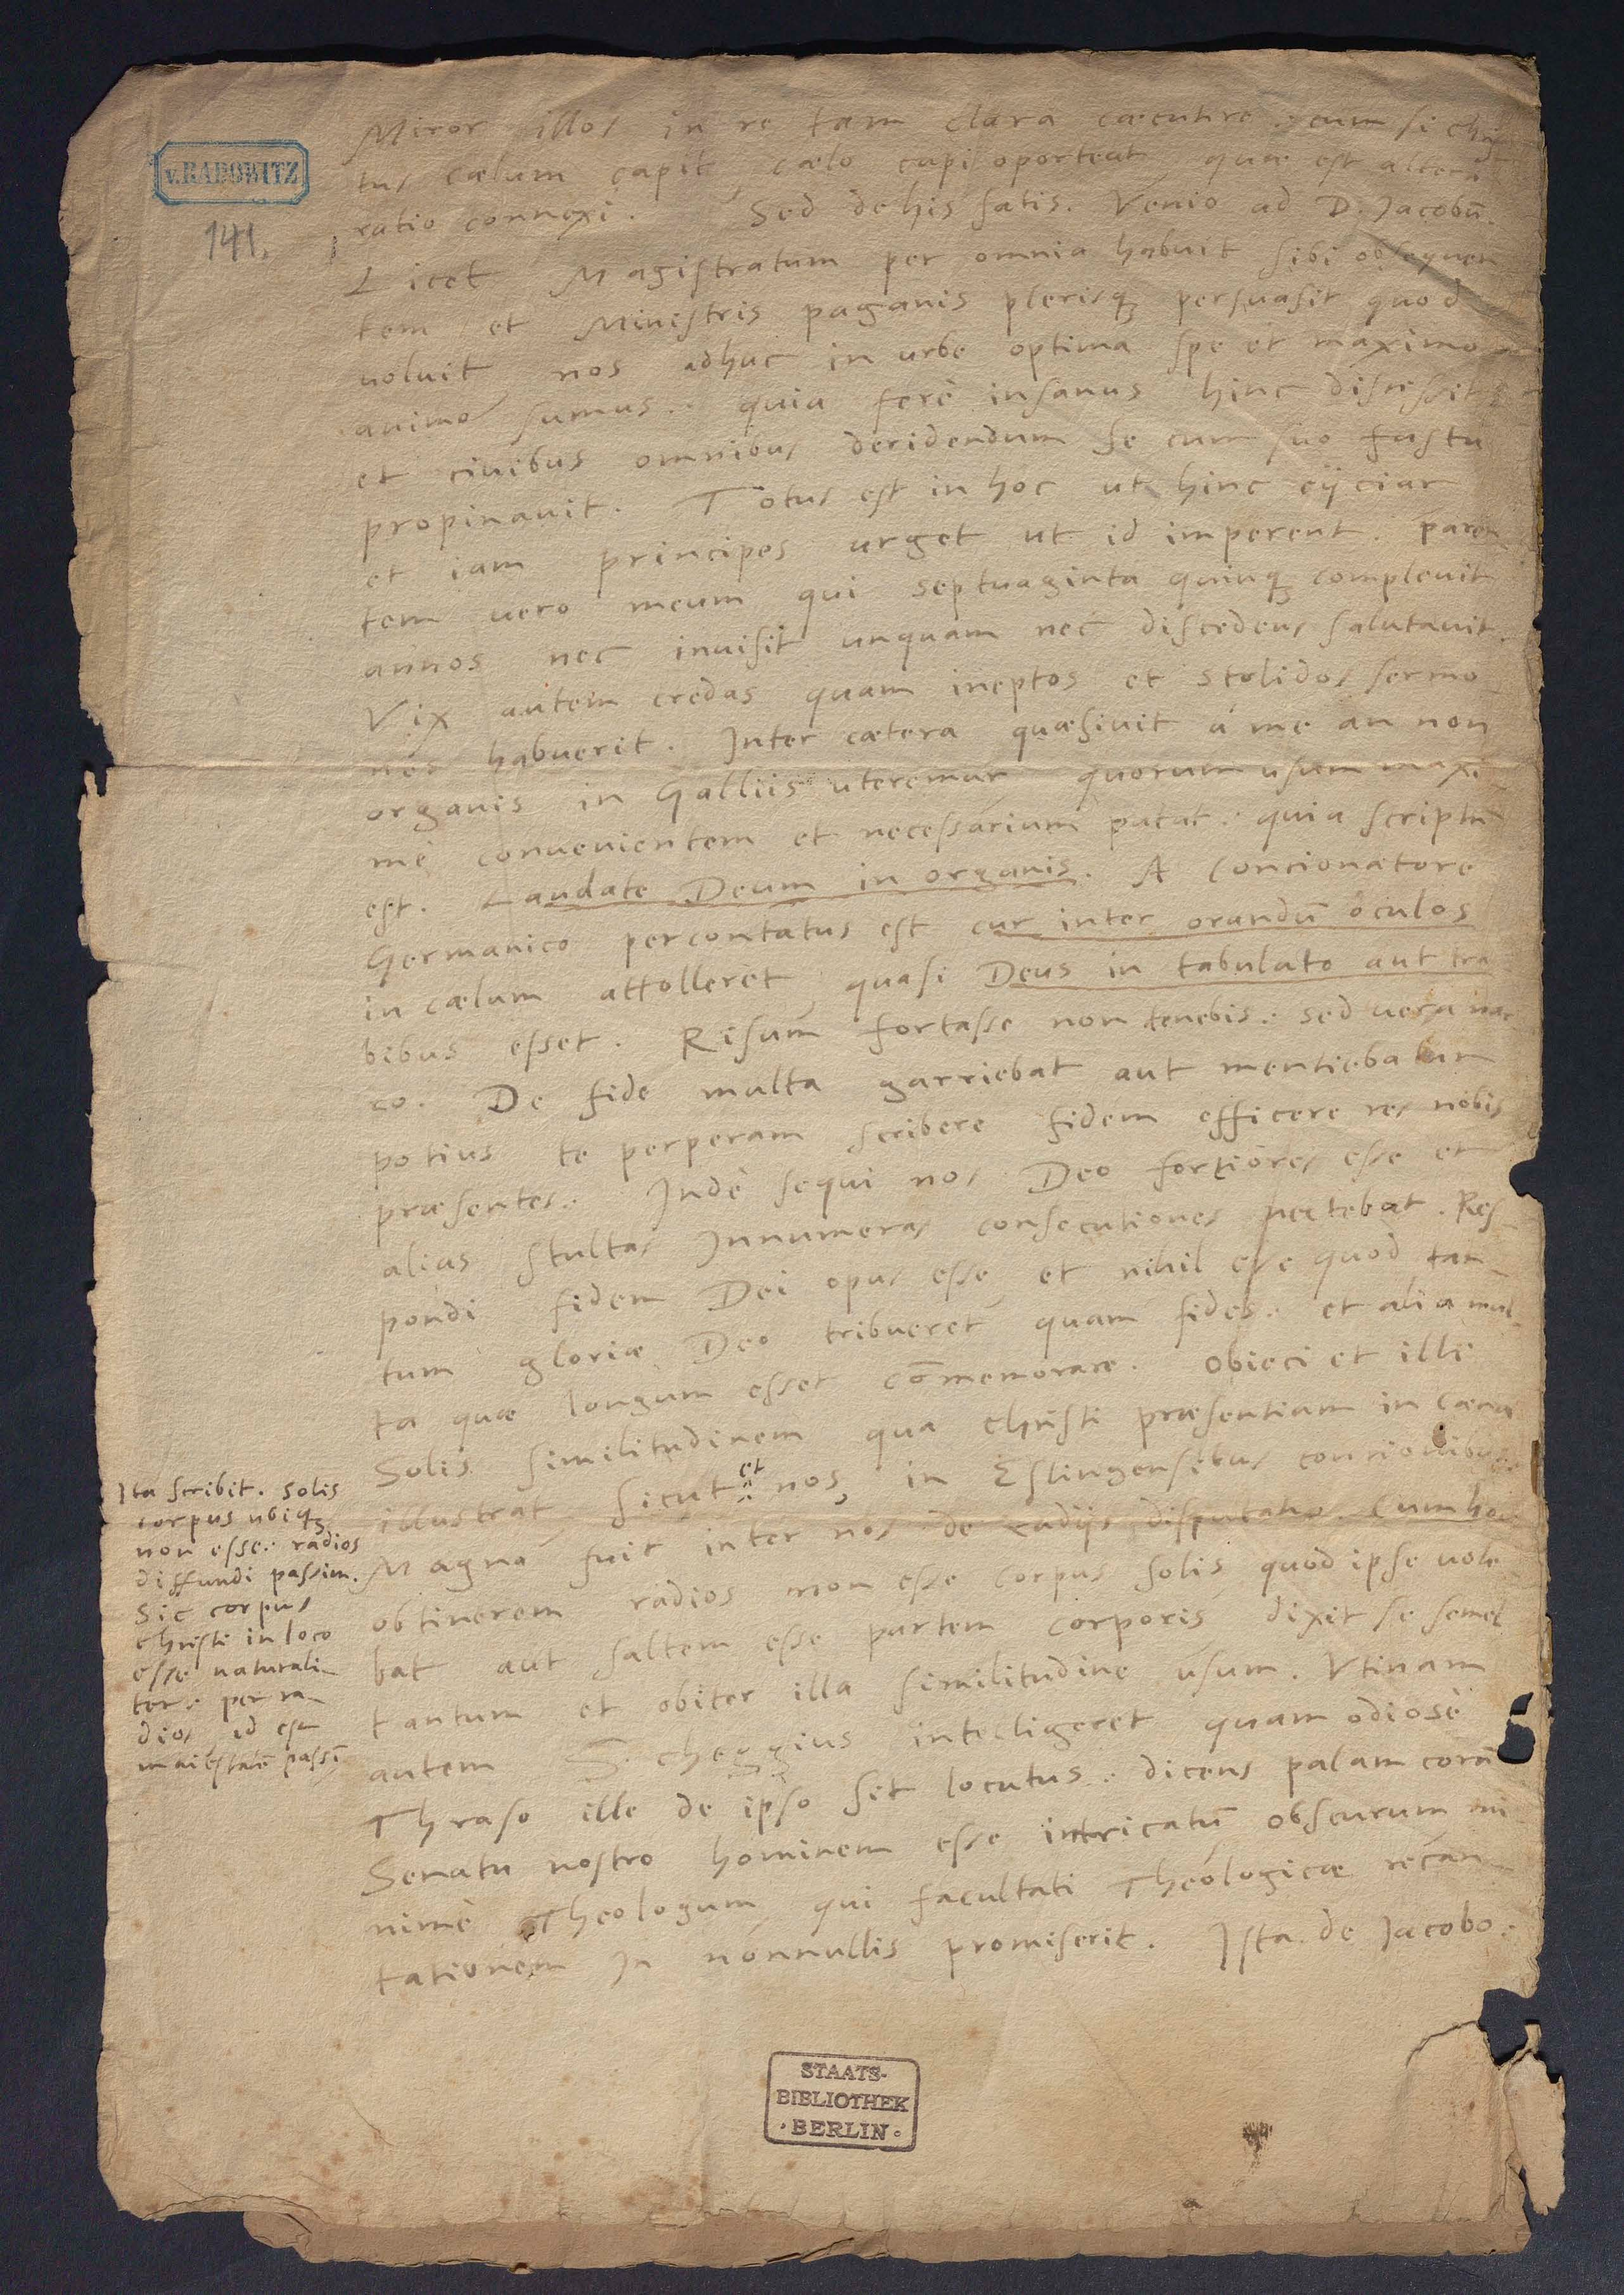 v. RADOWITZ
141.
Miror illos in re tam clara cæcutire: cum si Chris
tus cælum capit cælo capi oporteat quæ est altera
ratio connexi. Sed de his satis. Venio ad D. Jacobū.
Licet Magistratum per omnia habuit sibi obsequen
tem et Ministris paganis plerisq; persuasit quod
uoluit nos adhuc in urbe optima spe et maximo
animo sumus: quia ferè insanus hinc discessit
et ciuibus omnibus deridendum se cum suo fastu
propinauit. Totus est in hoc ut hinc eijciar
et iam principes urget ut id imperent. Paren
tem uero meum qui septuaginta quinq; compleuit
annos nec inuisit unquam nec discedens salutauit.
Vix autem credas quam ineptos et stolidos sermo
nes habuerit. Inter cætera quæsiuit à me an non
organis in Galliis uteremur quorum usum maxi
mè conuenientem et necessarium putat: quia scriptū
est. Laudate Deum in organis. A Concionatore
Germanico percontatus est cur inter orandū oculos
in cælum attolleret quasi Deus in tabulato aut tra
bibus esset. Risum fortasse non tenebis: sed uera nar
ro. De fide multa garriebat aut mentiebatur
potius te perperam scribere fidem efficere res nobis
præsentes. Indè sequi nos Deo fortiores esse et
alias stultas Innumeras consecutiones nectebat. Res
pondi fidem Dei opus esse et nihil esse quod tan
tum gloriæ Deo tribueret quam fides: et alia mul
ta quæ longum esset cōmemorare. Obieci et illi
Solis similitudinem qua Christi præsentiam in cæna
illustrat sicut et nos, in Eslingensibus concionibus
Magna fuit inter nos de radijs disputatio. Cum hoc
obtinerem radios non esse corpus solis quod ipse uole
bat aut saltem esse partem corporis dixit se semel
tantum et obiter illa similitudine usum. Vtinam
autem Scheggius intelligeret quam odiosè
Thraso ille de ipso sit locutus: dicens palam corā
Senatu nostro hominem esse intricatū obscurum mi
nimè Theologum qui facultati Theologicæ recan
tationem in nonnullis promiserit. Ista de Jacobo.
Ita scribit. Solis
corpus ubiq;
non esse: radios
diffundi passim.
Sic corpus
Christi in loco
esse naturali
ter: per ra
dios id est
maiestatē passī
STAATS-
BIBLIOTHEK
· BERLIN ·